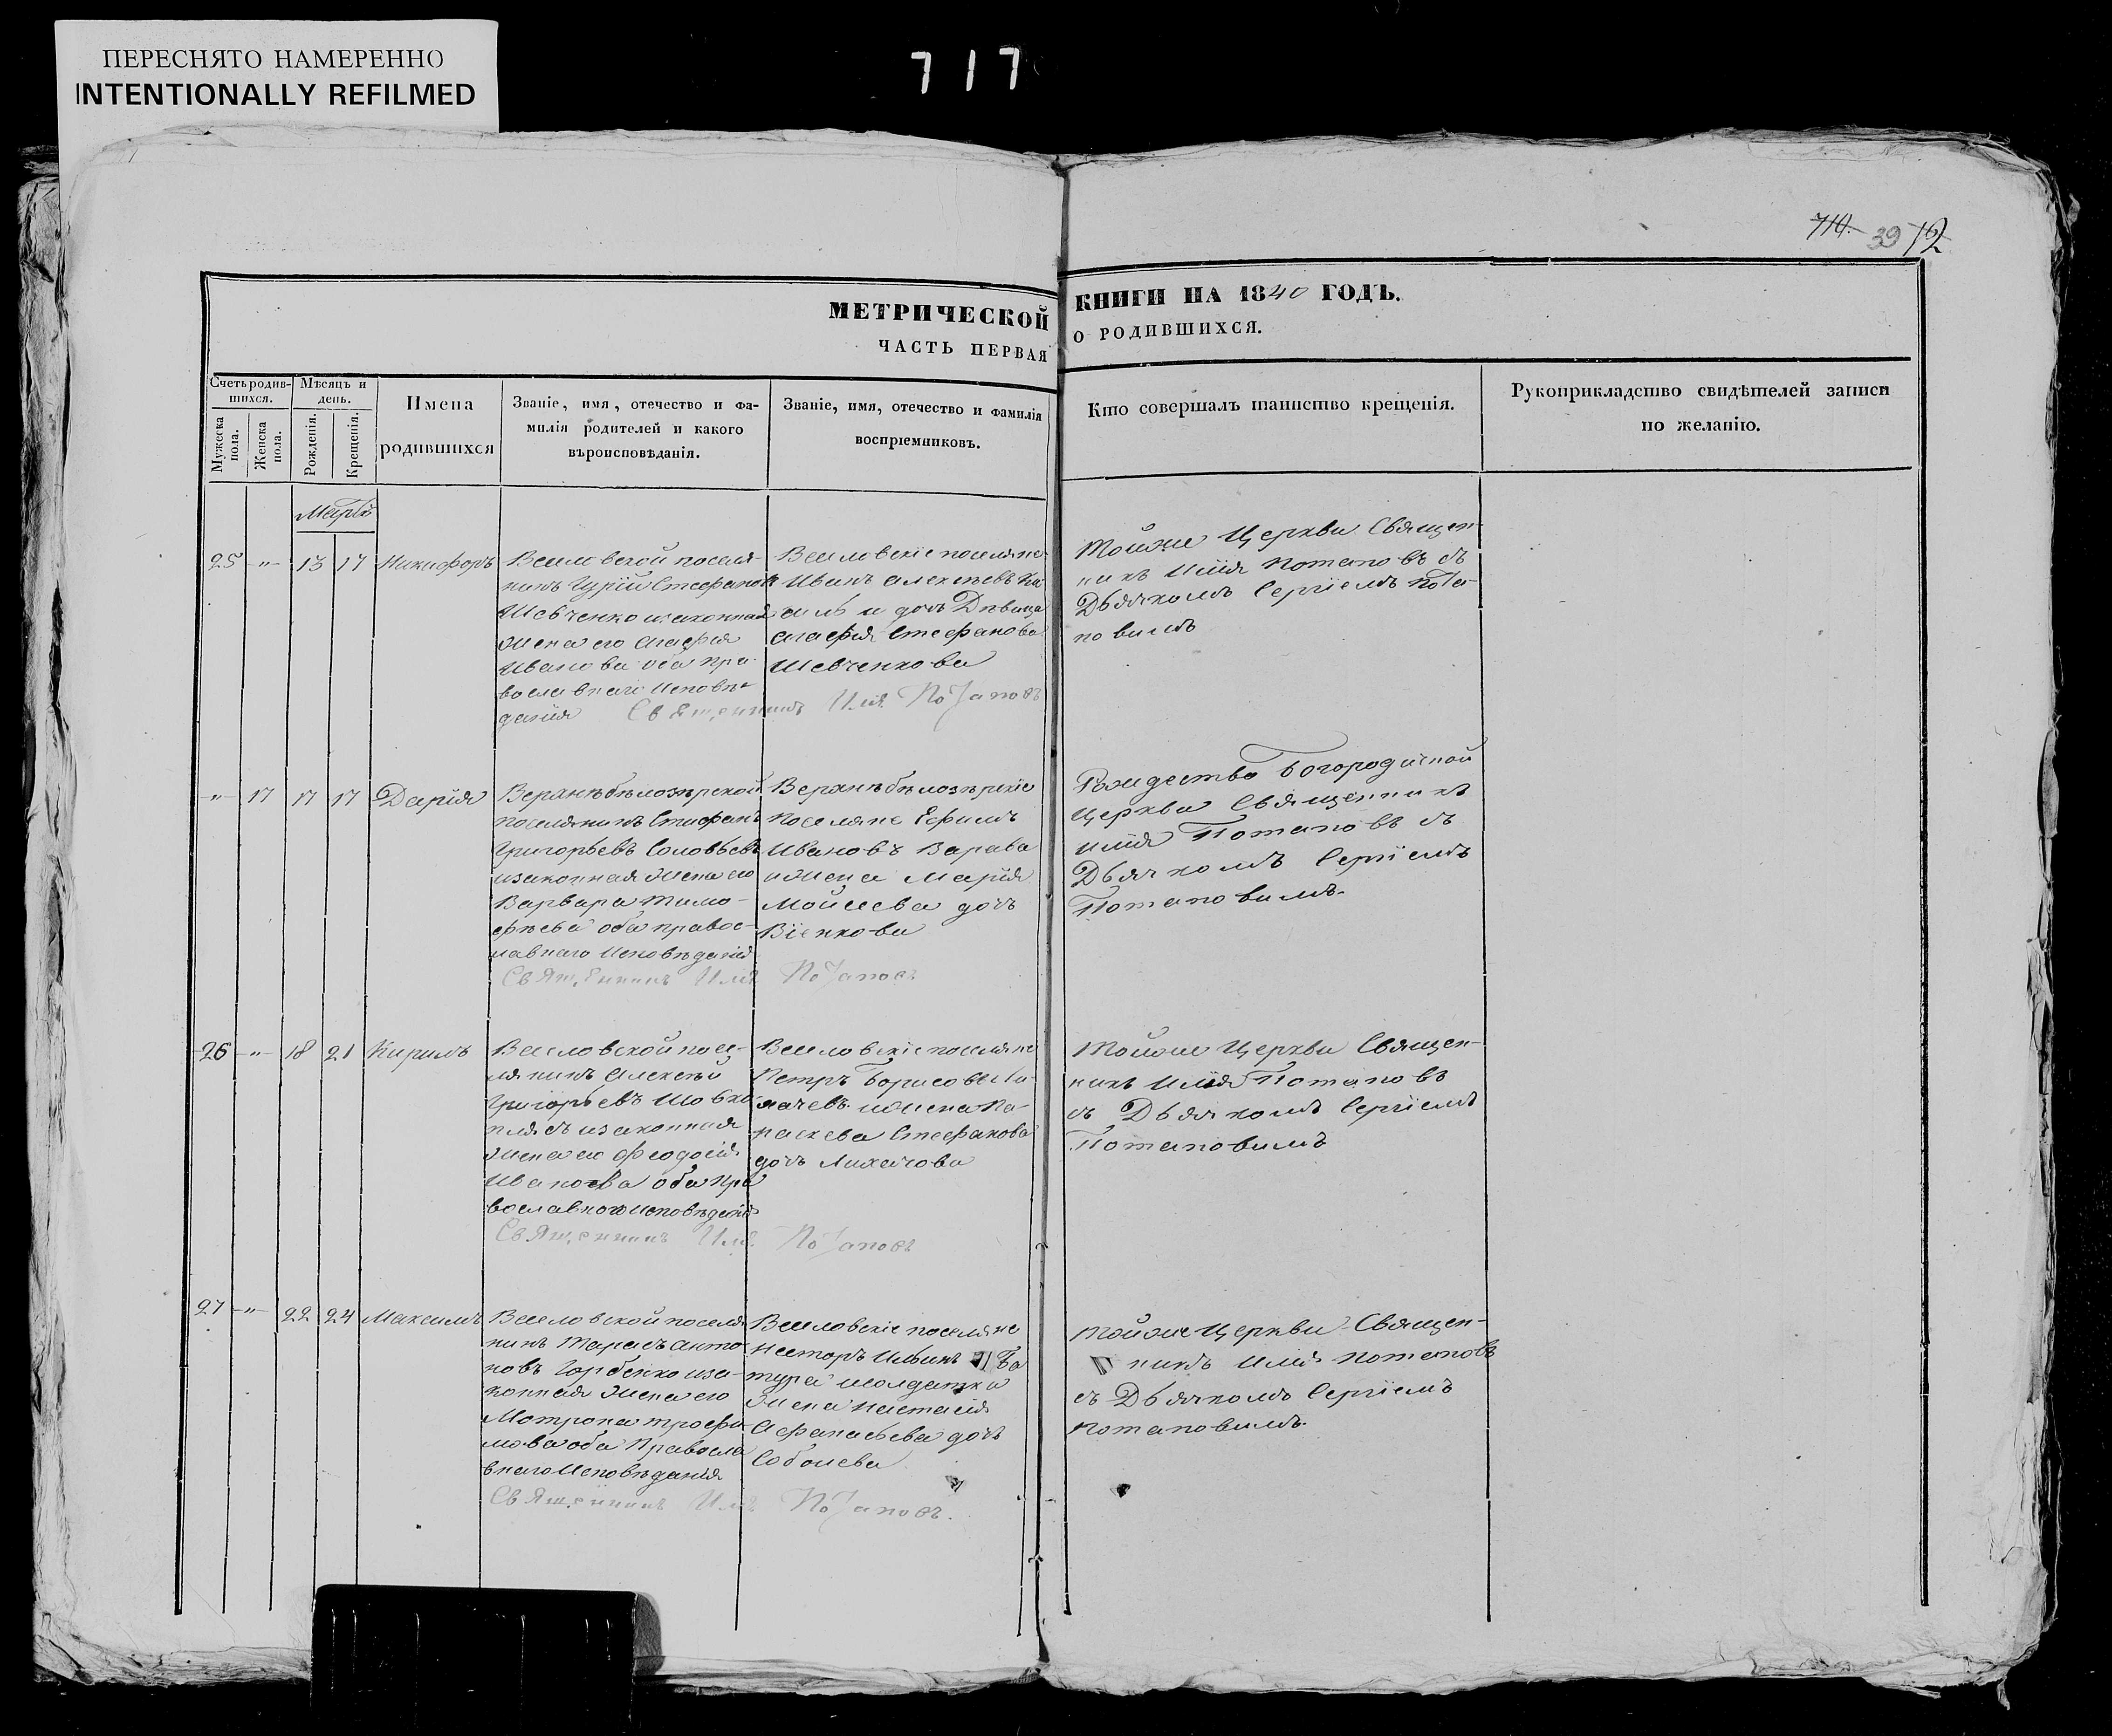 ПЕРЕСНЯТО НАМЕРЕННО
INTENTIONALLY REFILMED
717
710. 39 12
МЕТРИЧЕСКОЙ КНИГИ НА 1840 ГОДЪ.
ЧАСТЬ ПЕРВАЯ О РОДИВШИХСЯ.
Счетъ родив-
шихся.
Мужеска пола.
Женска пола.
Мѣсяцъ и
день.
Рожденія.
Крещенія.
Имена
родившихся
Званіе, имя, отечество и фа-
милія родителей и какого
вѣроисповѣданія.
Званіе, имя, отечество и фамилія
воспріемниковъ.
Кто совершалъ таинство крещенія.
Рукоприкладство свидѣтелей записи
по желанію.
Мартъ
25 -"- 13 17 Никифоръ
Веселовской поселя-
нинъ Гурій Стефановъ
Шевченко изаконная
Жена его Агафія
Иванова оба пра-
вославнаго исповѣ-
данія
Веселовскіе поселяне
Иванъ Алексѣевъ
и дочь Дѣвица
Агафія Стефанова
Шевченкова
Священникъ Илія Потаповъ
Тойже Церкви Священ-
никъ Илія Потаповъ съ
Дьячкомъ Сергіемъ Пота-
повимъ
-"- 17 17 17 Дарія
Верхнѣбѣлозѣрской
поселянинъ Стефанъ
Григорьевъ Соловьевъ
изаконная Жена его
Варвара Тимо-
фѣева оба правос-
лавнаго исповѣданія
Верхнѣбѣлозѣрскіе
поселяне Ефимъ
Ивановъ Варава
иЖена Марія
Мойсеева дочь
Віенкова
Священникъ Илія Потаповъ
Рождество Богородичной
Церкви Священникъ
Илія Потаповъ съ
Дьячкомъ Сергіемъ
Потаповимъ.
26 -"- 18 21 Кирилъ
Веселовской посе-
лянинъ Алексѣй
Григорьевъ Шовко-
плясъ изаконная
Жена его Феодосія
Иванова оба пра
вославного исповѣданія
Веселовскіе поселяне
Петръ Борисовъ
иЖена Па-
раскева Стефанова
дочь Лихачова
Священникъ Илія Потаповъ
Тойже Церкви Священ-
никъ Илія Потаповъ
съ Дьячкомъ Сергіемъ
Потаповимъ
27 -"- 22 24 Максимъ
Веселовской поселя
нинъ Тарасъ Анто
новъ Горбенко иза-
конная Жена его
Мотрона Трофи-
мова оба Правосла
внаго Исповѣданія
Веселовскіе поселяне
Несторъ Ильинъ Ба
тура исолдатка
Жена Настасія
Афанасьева дочь
Соболева
Священникъ Илія Потаповъ.
Тойже Церкви Священ-
никъ Илія Потаповъ
съ Дьячкомъ Сергіемъ
Потаповимъ.